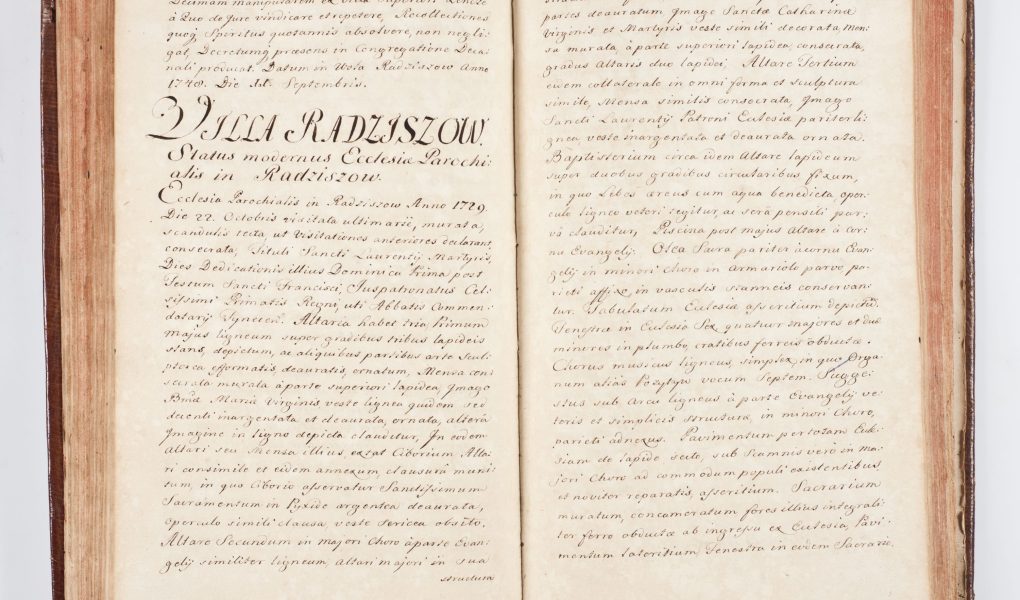 Decimam manipularem ex Villa Superiori Zencze
à Quo de Jure vindicare et repetere, Recollectiones
quoq Spiritus quotannis absolvere, non negli-
gat, Decretumq præsens in Congregatione Deca-
nali producat. Datum in Wola Radziszow Anno
1748. Die Septembris.
VILLA RADZISZOW.
Status modernus Ecclesiæ Parochi-
alis in Radziszow.
Ecclesia Parochialis in Radziszow Anno 1729.
Die 22. Octobris visitata ultimarie, murata,
scandulis tecta, ut Visitationes anteriores declarant,
consecrata, Tituli Sancti Laurentij Martyris,
Dies Dedicationis illius Dominica Prima post
Festum Sancti Francisci, Juspatronatus Cel-
sissimi Primatis Regni, uti Abbatis Commen-
datarij Tynecen. Altaria habet tria, Primum
majus ligneum super gradibus tribus lapideis
stans, depictum, ac aliquibus partibus arte Scul-
ptorea efformatis deauratis, ornatum, Mensa con-
secrata murata à parte superiori lapidea, Imago
Bmæ Mariæ Virginis veste lignea quidem sed
decenti inargentata et deaurata, ornata, alterâ
Imagine in ligno depicta clauditur, In eodem
Altari seu Mensa illius, extat Ciborium Alta-
ri consimile et eidem annexum clausurâ muni-
tum, in quo Ciborio asservatur Sanctissimum
Sacramentum in Pyxide argentea deaurata,
operculo simili clausa, veste sericea obsito.
Altare Secundum in majori Choro à parte Evan-
gelij similiter ligneum, Altari majori in sua
structura
partes deauratum, Imago Sanctæ Catharinæ
Virginis et Martyris veste simili decorata, Men-
sa murata, à parte superiori lapidea, consecrata,
gradus Altaris duo lapidei, Altare Tertium
eidem collaterale in omni forma et sculptura
simile, Mensa similis consecrata, Imago
Sancti Laurentij Patroni Ecclesiæ pariter li-
gnea veste inargentata et deaurata ornata.
Baptisterium circa idem Altare lapideum
super duobus gradibus circularibus fixum,
in quo Lebes æreus cum aqua benedicta, oper-
culo ligneo veteri tegitur, ac serâ pensili par-
vâ clauditur, Piscina post majus Altare à Cor-
nu Evangelij. Olea Sacra pariter à cornu Evan-
gelij in minori Choro in Armariolo parvo pa-
rieti affixo in vasculis stanneis conservan-
tur. Tabulatum Ecclesiæ asseritium depictum.
Fenestræ in Ecclesia Sex, quatuor majores et duæ
minores in plumbo, cratibus ferreis obductæ.
Chorus musicus ligneus, simplex in quo Orga-
num aliàs Pozytyw vocum Septem. Sugge-
stus sub Arcu ligneus à parte Evangelij ve-
teris et simplicis structuræ, in minori Choro,
parieti adnexus. Pavimentum per totam Eccle-
siam de lapide secto, sub Scamnis verò in Ma-
jori Choro ad commodum populi existentibus
et noviter reparatis, asseritium. Sacrarium
muratum, concameratum fores illius integrali-
ter ferro obductæ ab ingressu ex Ecclesia, Pavi-
mentum lateritium, Fenestra in eodem Sacrario